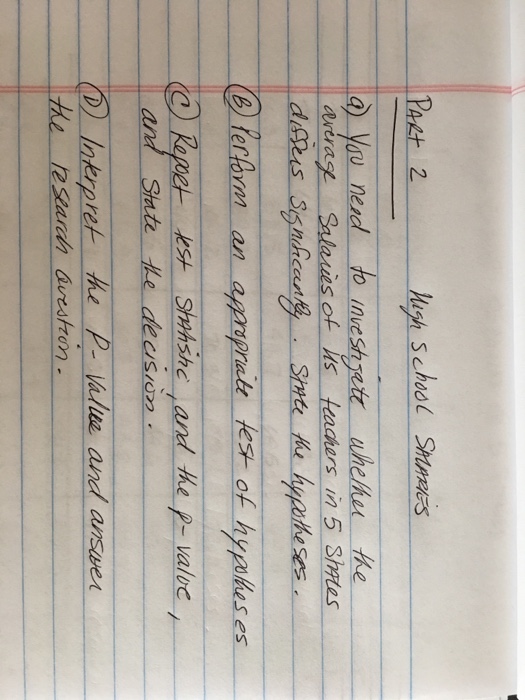 PART 2 High School SALARIES
a) You need to investigate whether the
average Salaries of HS teachers in 5 States
differs significantly. State the hypotheses.
B Perform an appropriate test of hypotheses
C Report test Statistic, and the p-value,
and State the decision.
D Interpret the P-Value and answer
the research Question.